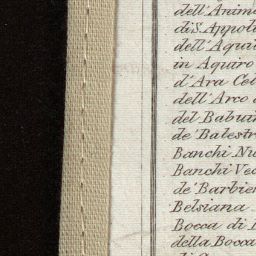 dell'Anim
di S. Appol
dell'Aqui
in Aquiro
d'Ara Ce
dell'Arco
del Babui
de' Balestr
Banchi Nu
Banchi Vec
de' Barbier
Belsiana
Bocca di
della Bocca